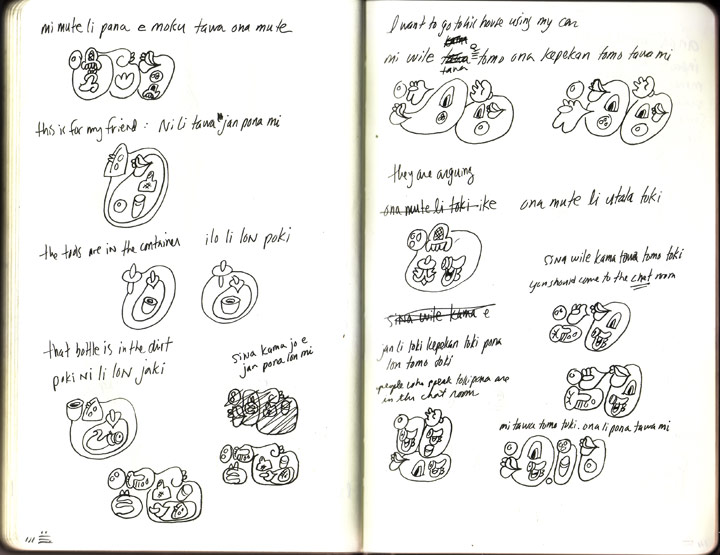 mi mute li pana e moku tawa ona mute
this is for my friend : Ni li tawa jan pona mi
the tools are in the container   ilo li lon poki
that bottle is in the dirt
poki ni li lon jaki
sina kama jo e
jan pona lon mi
I want to go to his house using my car
mi wile tawa tomo ona kepekan tomo tawa mi
they are arguing
ona mute li toki ike   ona mute li utala toki
sina wile kama tawa tomo toki
you should come to the chat room
sina wile kama e
jan li toki kepekan toki pona
lon tomo toki
people who speak toki pona are
in this chat room
mi tawa tomo toki. ona li pona tawa mi